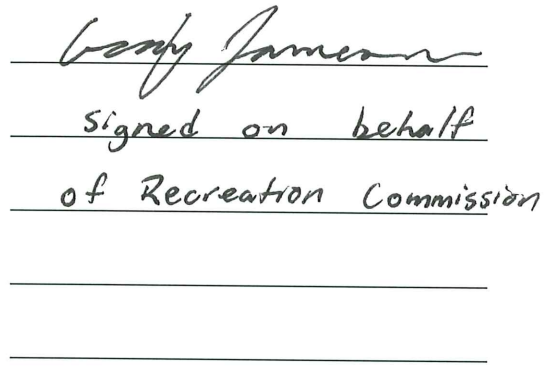 Jameson
signed on behalf
of Recreation Commission